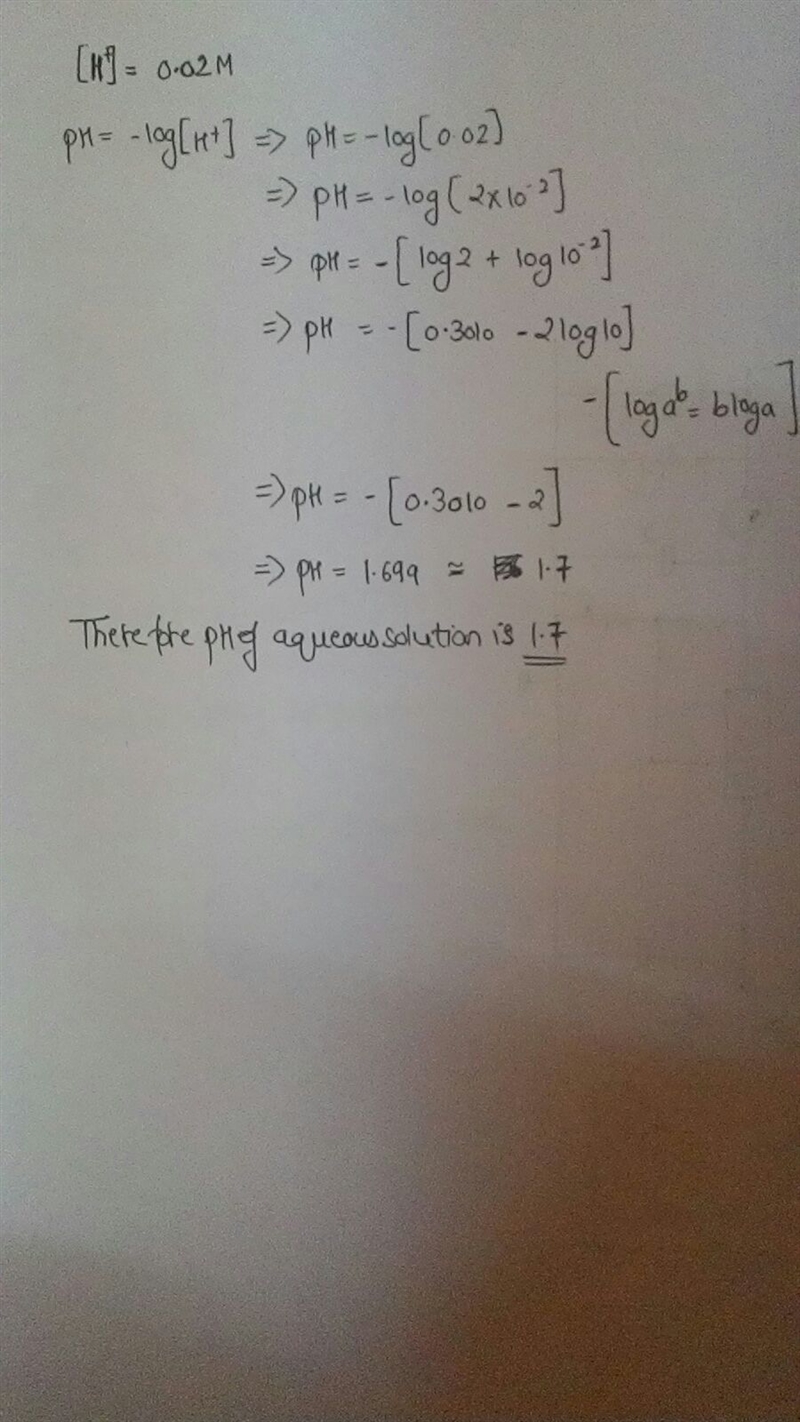 [H⁺] = 0.02M
pH = -log[H+] => pH = -log[0.02]
=> pH = -log[2x10⁻²]
=> pH = -[log2 + log10⁻²]
=> pH = -[0.3010 - 2log10]
-[logaᵇ = bloga]
=> pH = -[0.3010 - 2]
=> pH = 1.699 ≈ 1.7
Therefore pH of aqueous solution is 1.7